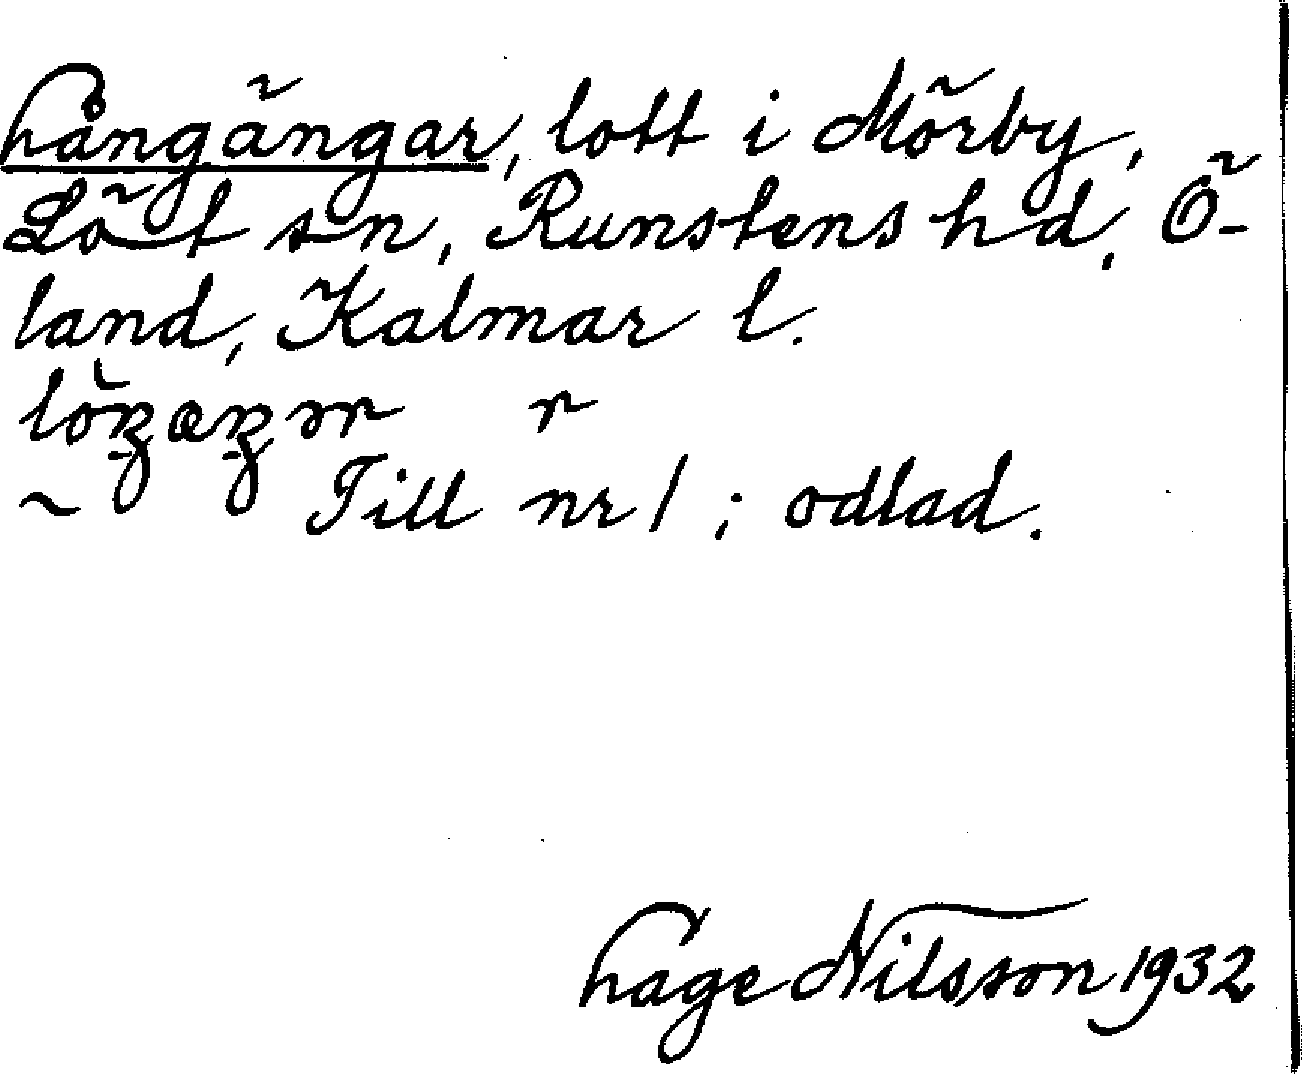 Långängar, lott i Mörby,
Löt sn, Runstens hd, Ö-
land, Kalmar l.
r
~ Till nr 1; odlad.
Lage Nilsson 1932